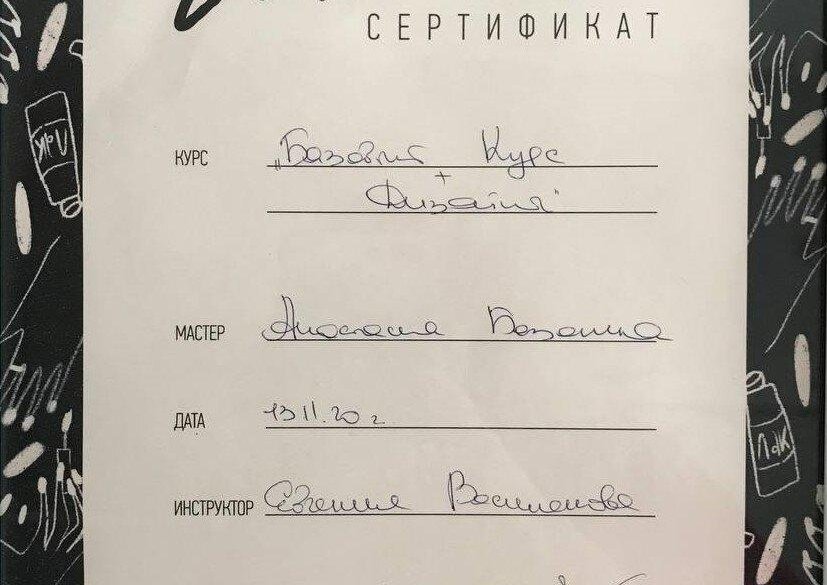 СЕРТИФИКАТ
КУРС „Базовый Курс
+
Дизайн"
МАСТЕР Анастасия
ДАТА 13 11.20 г
ИНСТРУКТОР Евгения
ЛДК
ЛДК